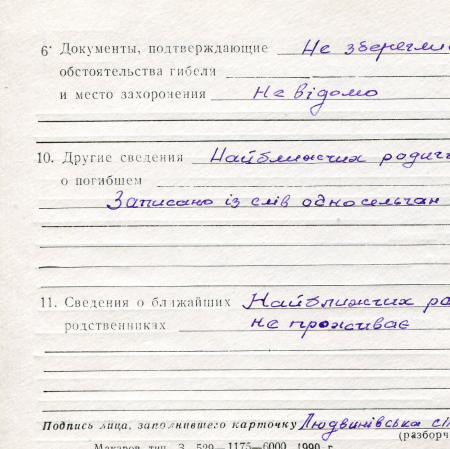 6. Документы, подтверждающие Не зберегли
обстоятельства гибели
и место захоронения Невідомо
10. Другие сведения Найближчих родич
о погибшем
Записано із слів односельчан
11. Сведения о ближайших Найближчих ро
родственниках не проживає
Подпись лица, заполнившего карточку Людвинівська сіл
(разборч
Макаров тип. З. 529—1175—6000 1990 г.